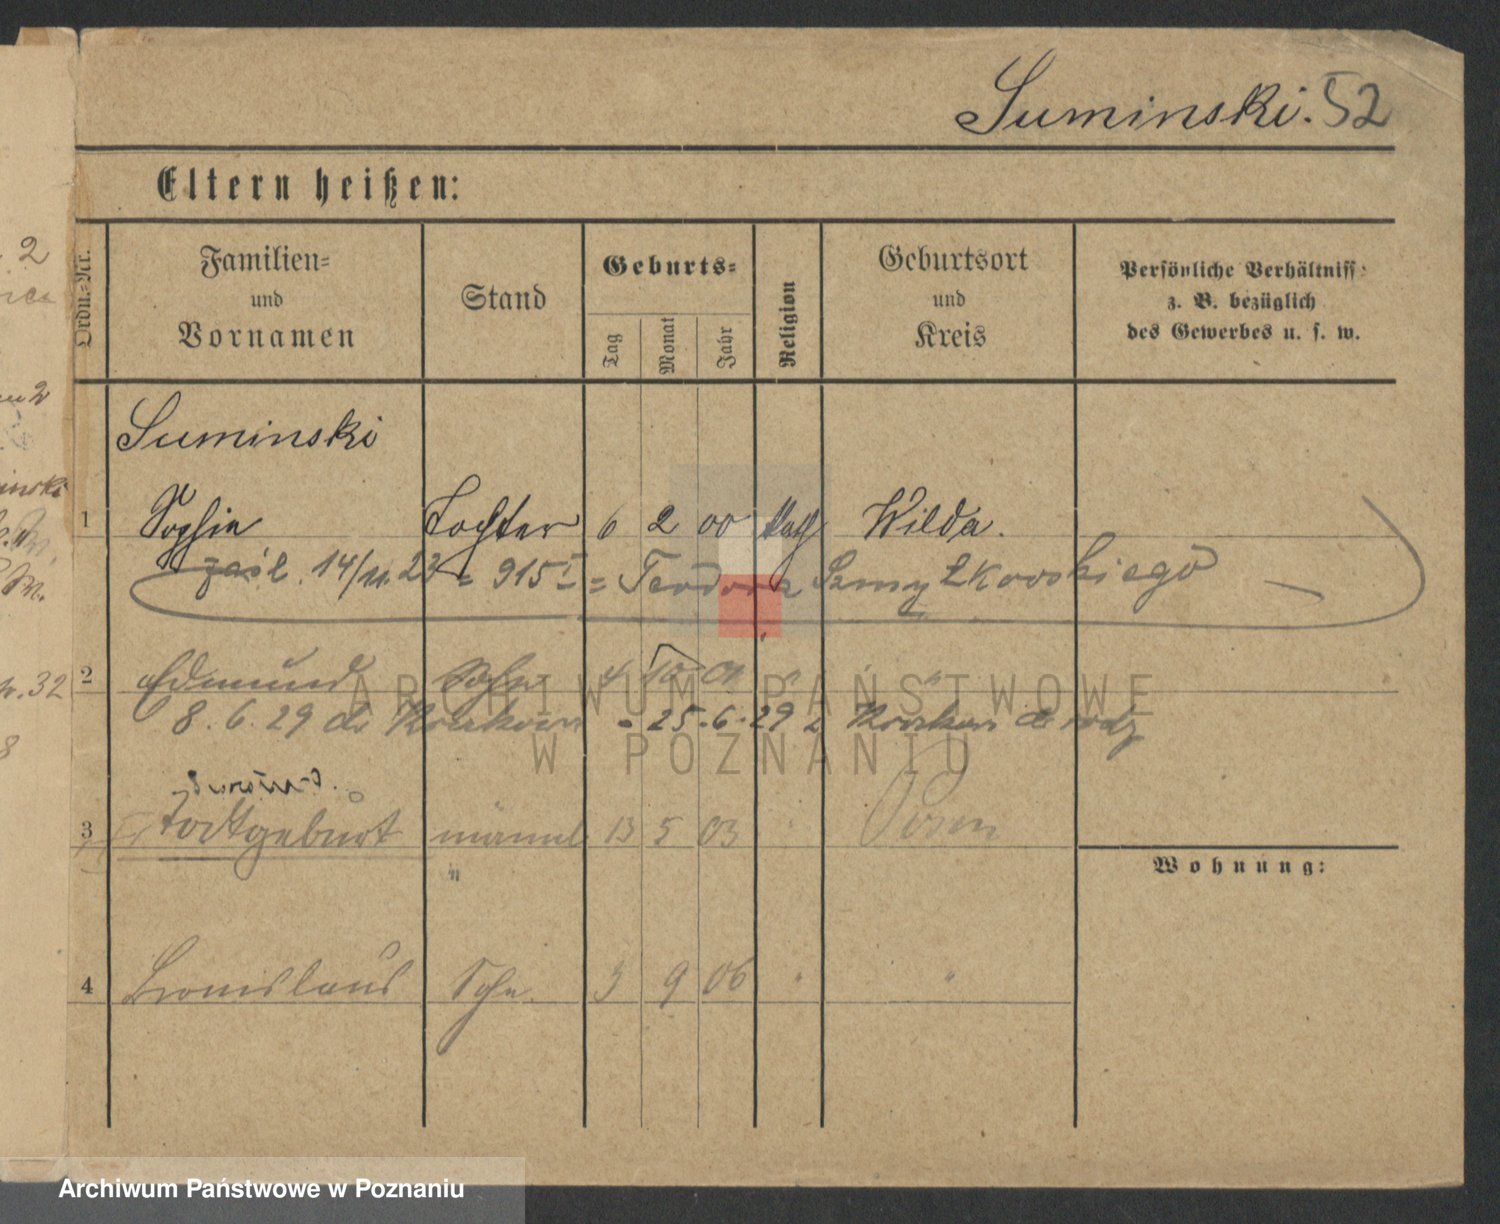 Suminski. 52
Eltern heißen:
Ordn.-Nr.
Familien-
und
Vornamen
Stand
Geburts-
Tag
Monat
Jahr
Religion
Geburtsort
und
Kreis
Persönliche Verhältniss
z. B. bezüglich
des Gewerbes u. s. w.
Suminski
1 Sophie Tochter 6 2 00 kath Wilda.
zaśl. 14/11. 23 = 915 I = Teodora Szmytkowskiego
2 Edmund Sohn 4 10 01 " " "
8. 6. 29 do Krakowa - 25. 6. 29 z Krakowa do rodz
3 Todtgeburt männl 13 5 03 " Posen
"
Wohnung:
4 Bronislaus Sohn. 3 9 06 " "
ARCHIWUM PAŃSTWOWE
W POZNANIU
Archiwum Państwowe w Poznaniu